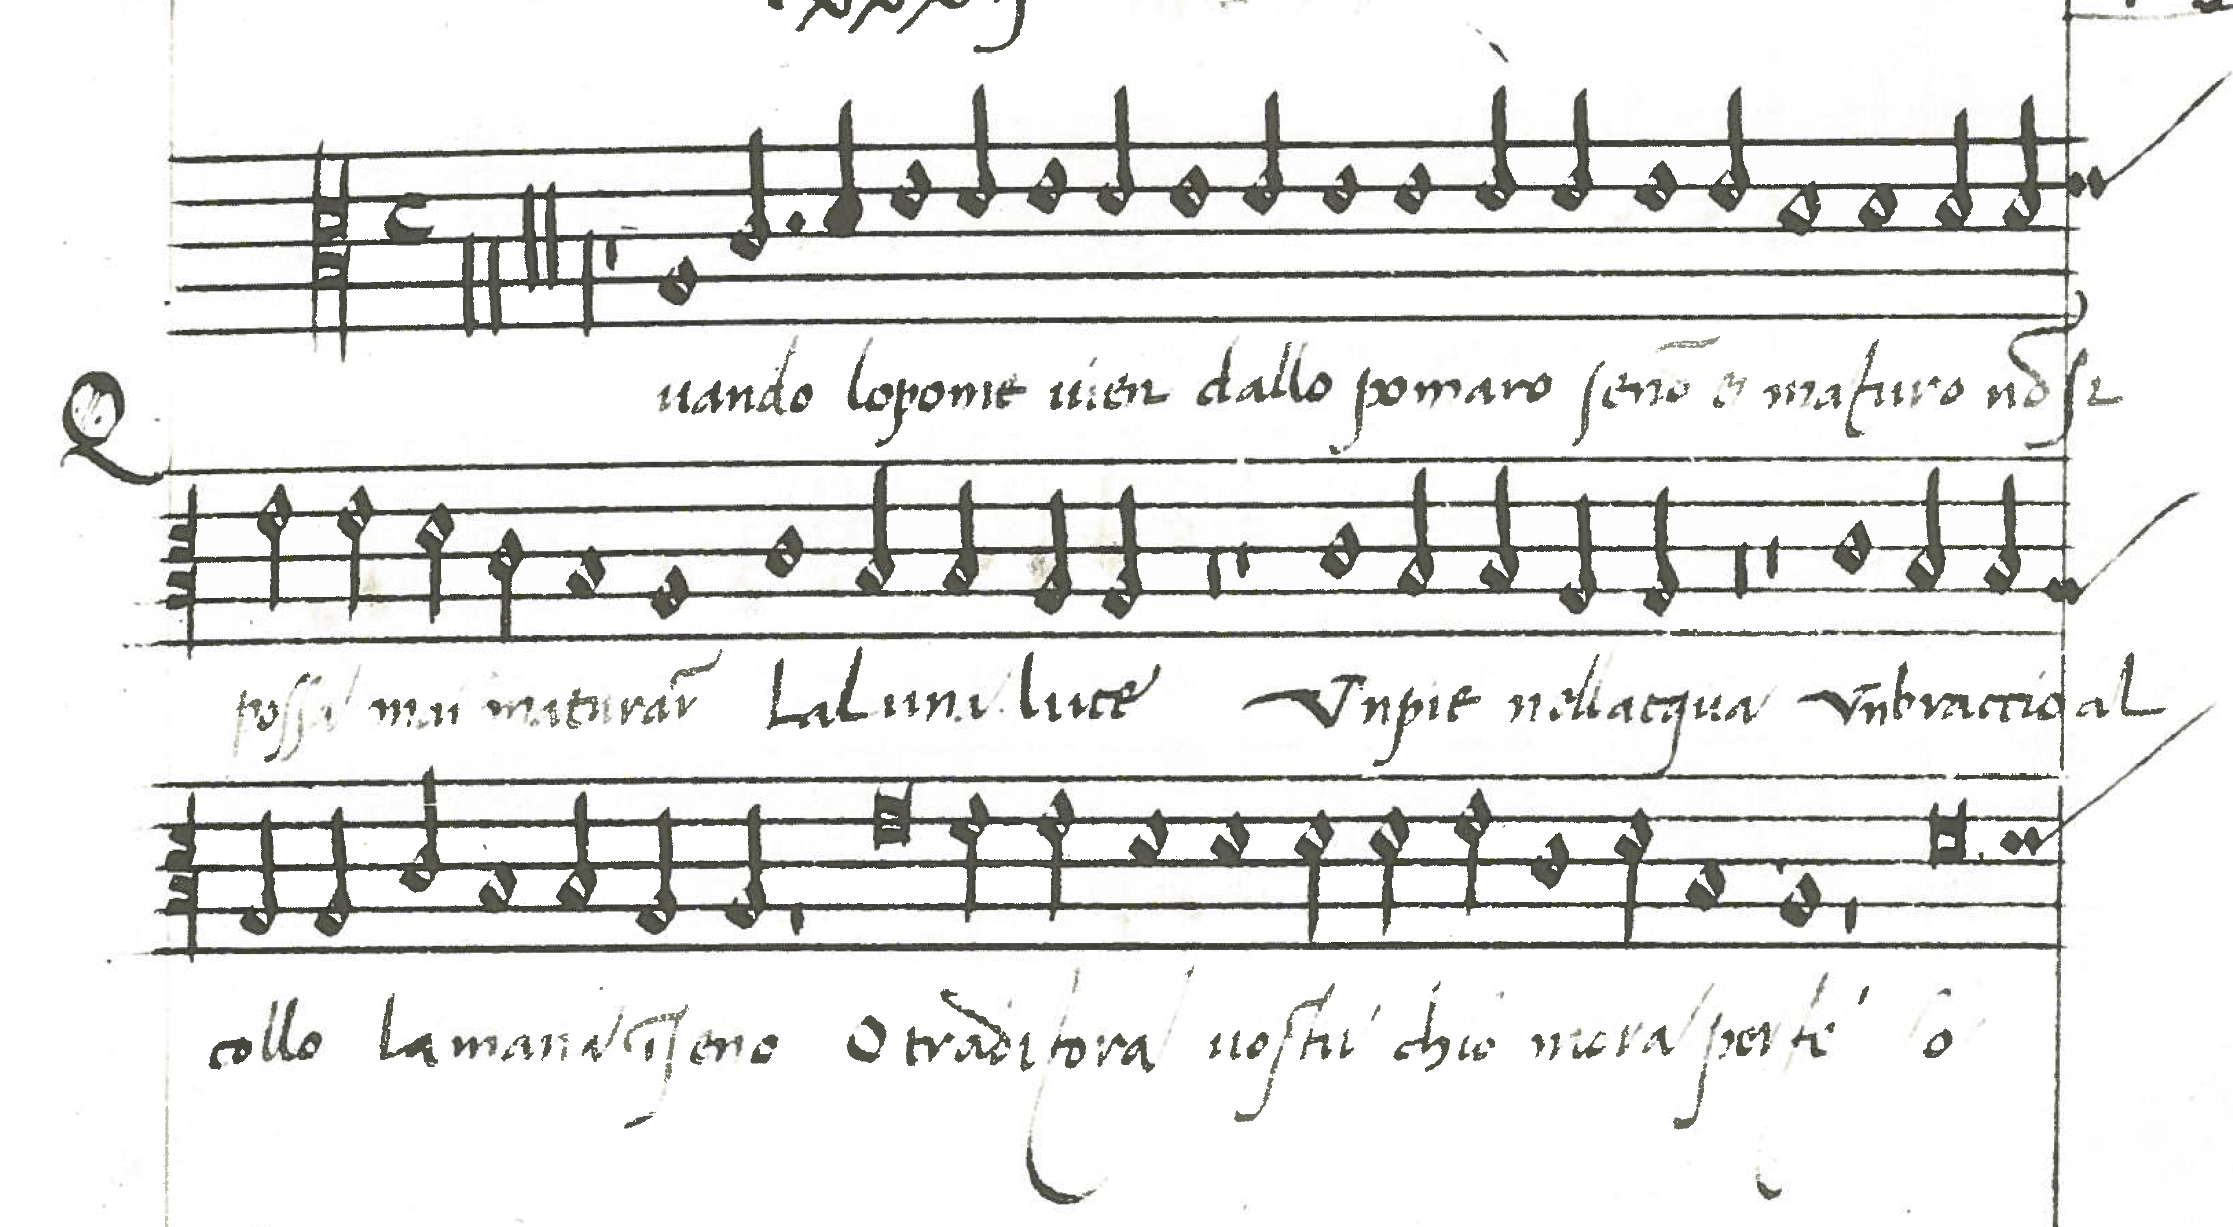 Quando lo pome uien dallo pomaro senō e maturo nō si
possi mai maturar̄ Lal uni luce Vnpie nellacqua vn braccio al
collo la mana ī seno O traditora uostu chio mora per te o